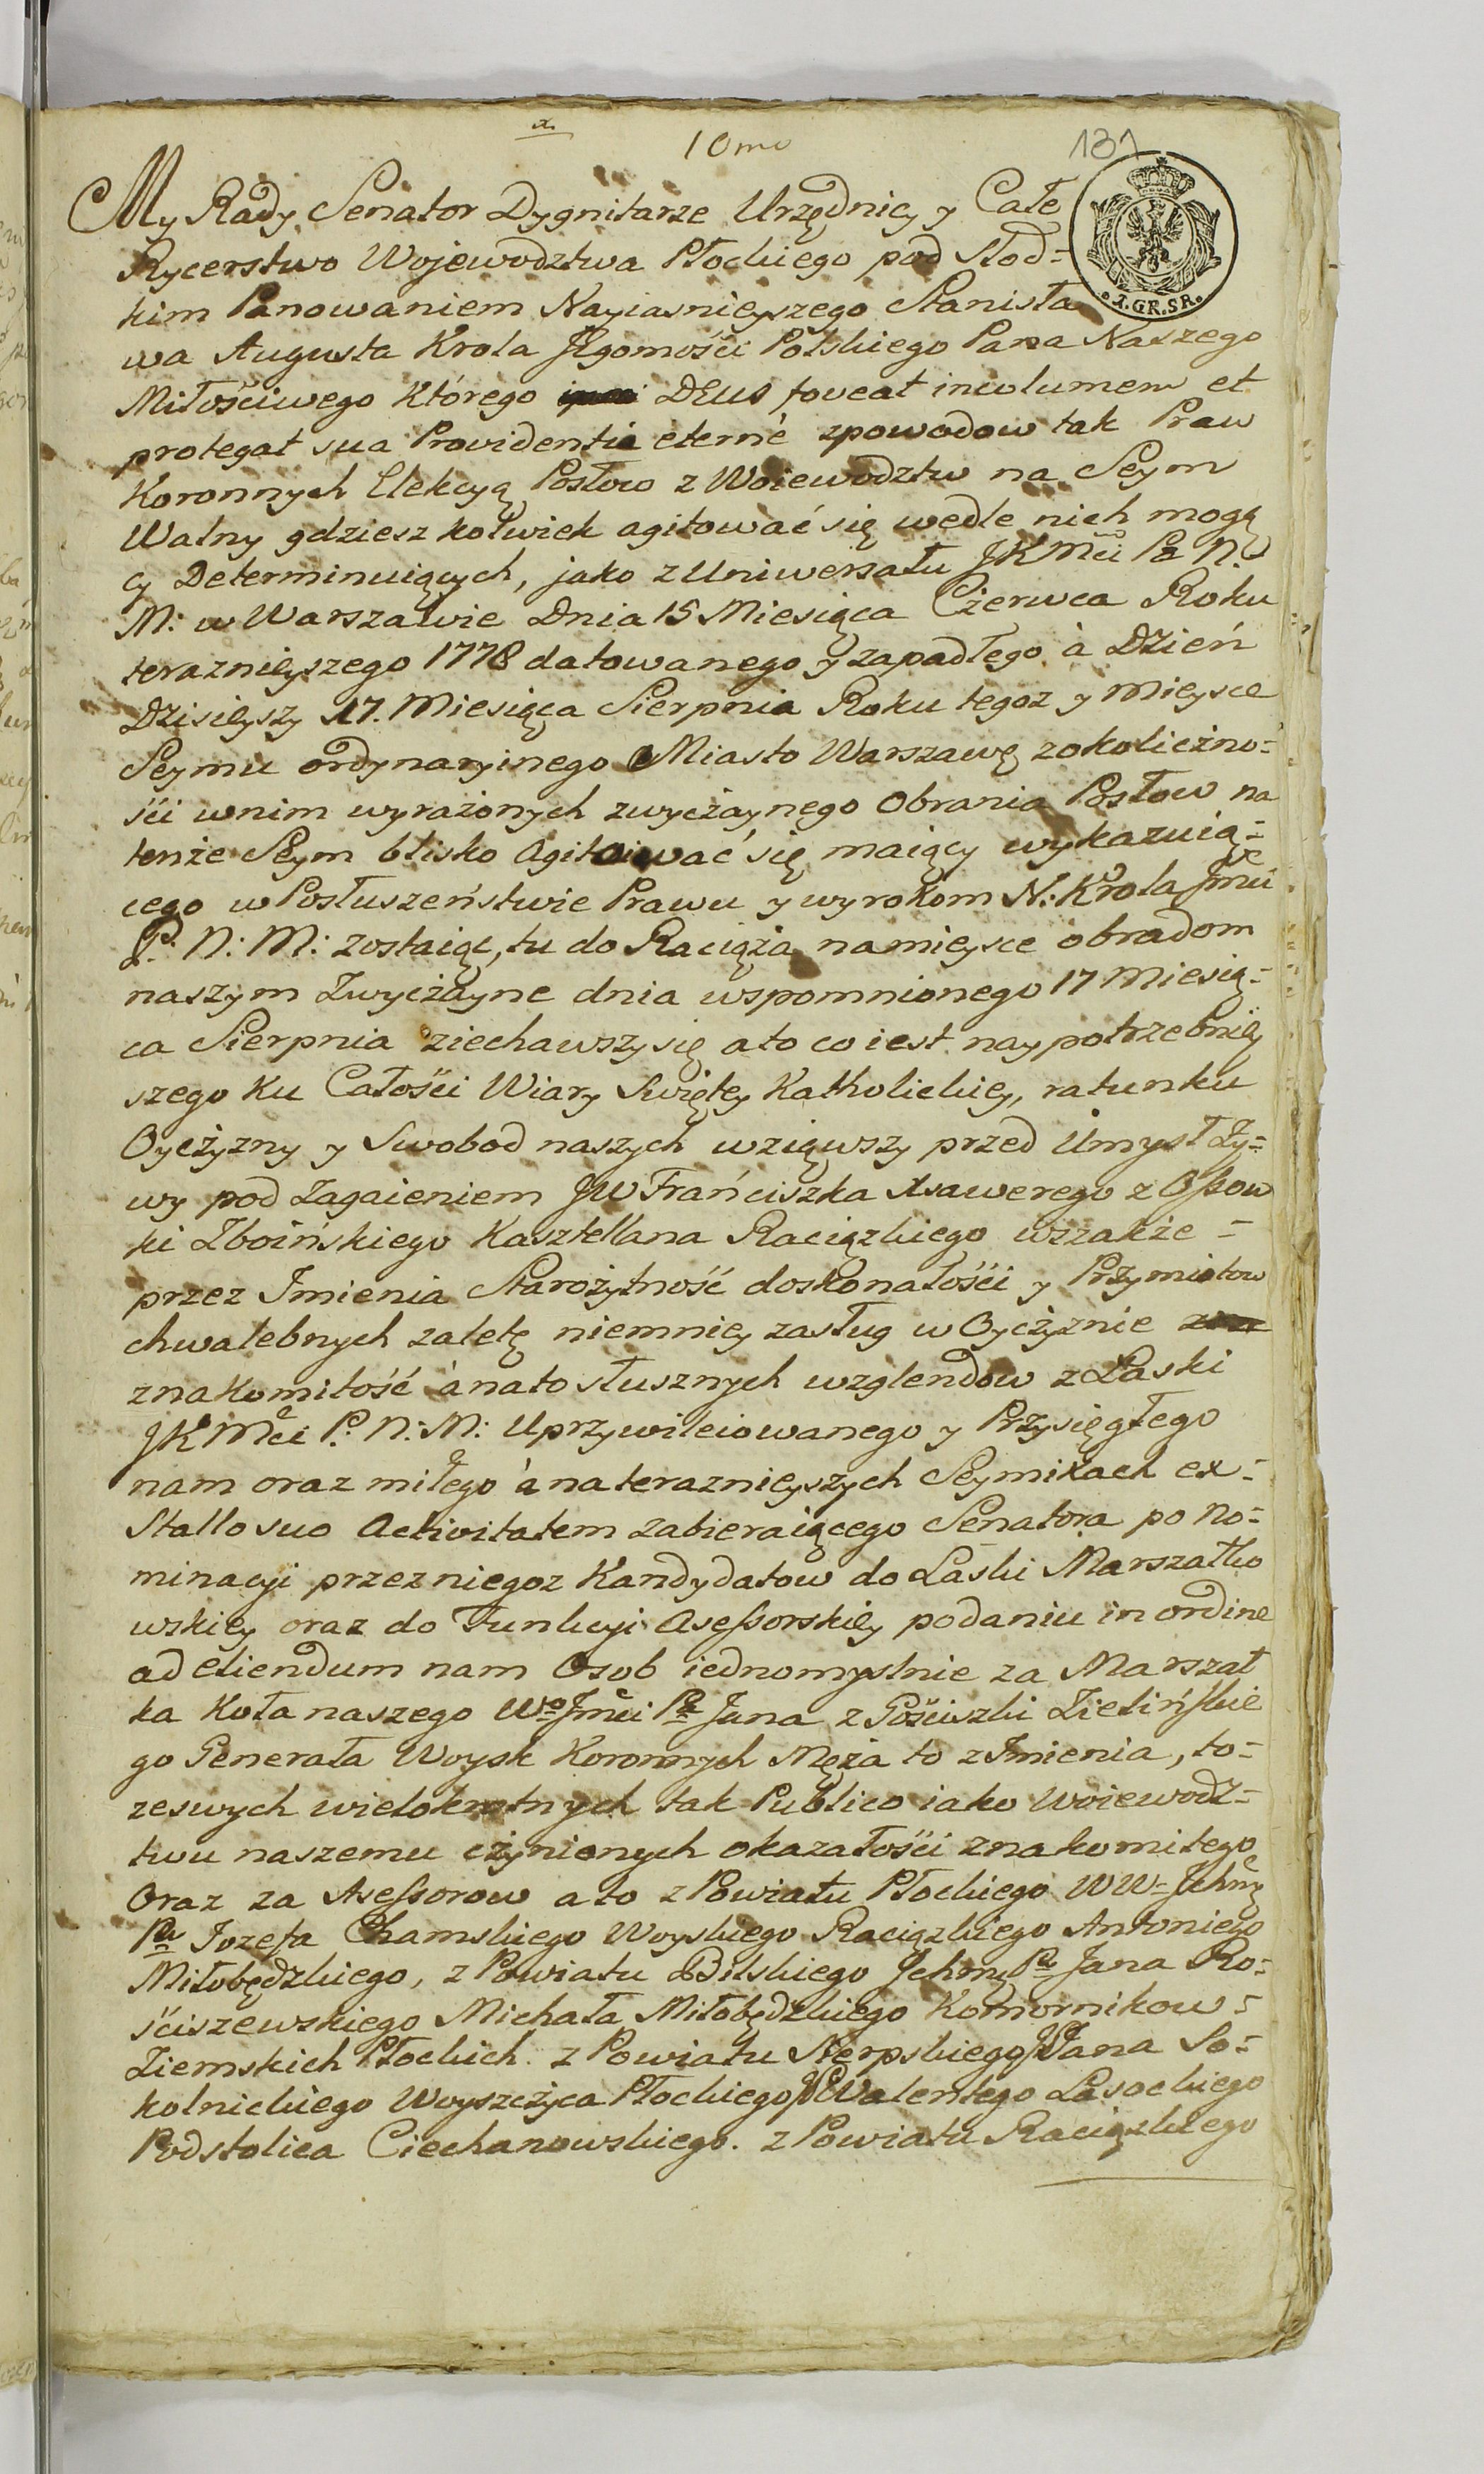 x.
10mo
131
My Rady Senator Dygnitarze Urzędnicy y Całe
Rycerstwo Wojewodztwa Płockiego pod Słod-
kim Panowaniem Nayiasnieyszego Stanisła
wa Augusta Krola Jgomości Polskiego Pana Naszego
Miłościwego Którego DEUS foveat incolumem et
protegat sua Providentia eterné zpowodow tak Praw
Koronnych Elekcyą Posłow z Woiewodztw na Seym
Walny gdziesz kolwiek agitować się wedle nich mogą
cy Determinuiących, jako z Uniwersału JKMci Pa N.
M: w Warszawie Dnia 15 Miesiąca Czerwca Roku
teraznieyszego 1778 datowanego y zapadłego à Dzień
Dzisieyszy 17. Miesiąca Sierpnia Roku tegoz y Mieysce
Seymu ordynaryinego Miasto Warszawę zokoliczno-
ści wnim wyrażonych zwyczaynego Obrania Posłow na
tenże Seym blisko Agitować się maiący wykazuią-
cego w Posłuszeństwie Prawu y wyrokom N: Krola Jmci
P. N: M: zostaiąc, tu do Raciąża namieysce obradom
naszym Zwyczayne dnia wspomnionego 17 Miesią-
ca Sierpnia ziechawszy się ato co iest naypotrzebniey
szego Ku Całości Wiary Swiętey Katholickiey, ratunku
Oyczyzny y Swobod naszych wziąwszy przed Umysł Ży-
wy pod Zagaieniem JW Franciszka Xsawerego z Ossow
ki Zboińskiego Kasztellana Raciązkiego wszakże -
przez Jmienia Starożytność doskonałości y Przymiotow
chwalebnych zaletę niemniey zasług w Oyczyznie
znakomitość ànato słusznych wzglendow z Łaski
JKMci P. N: M: Uprzywileiowanego y Przysięgłego
nam oraz miłego à na teraznieyszych Seymikach ex-
Stallo suo Activitatem zabieraiącego Senatora po No-
minacyi przez niegoz Kandydatow do Laski Marszałko
wskiey oraz do Funkcyi Assessorskiey podaniu in ordine
ad eliendum nam Osob iednomyslnie za Marszał
ka Koła naszego Wo Jmci Pa Jana z Gościszki Zielińskie
go Generała Woysk Koronnych Męża to z Jmienia, to-
zeswych wielokrotnych tak Publico iako Woiewodz-
twu naszemu czynionych okazałości znakomitego
Oraz za Assessorow ato z Powiatu Płockiego WW Jchmę
Pw Jozefa Chamskiego Woyskiego Raciązkiego Antoniego
Miłobędzkiego, z Powiatu Bilskiego Jchmę Pw Jana Ro-
ściszewskiego Michała Miłobędzkiego Komornikow -
Ziemskich Płockich. z Powiatu Sierpskiego Jana So-
kolnickiego Woyszczyca Płockiego Walentego Lasockiego
Podstolica Ciechanowskiego. z Powiatu Raciązkiego